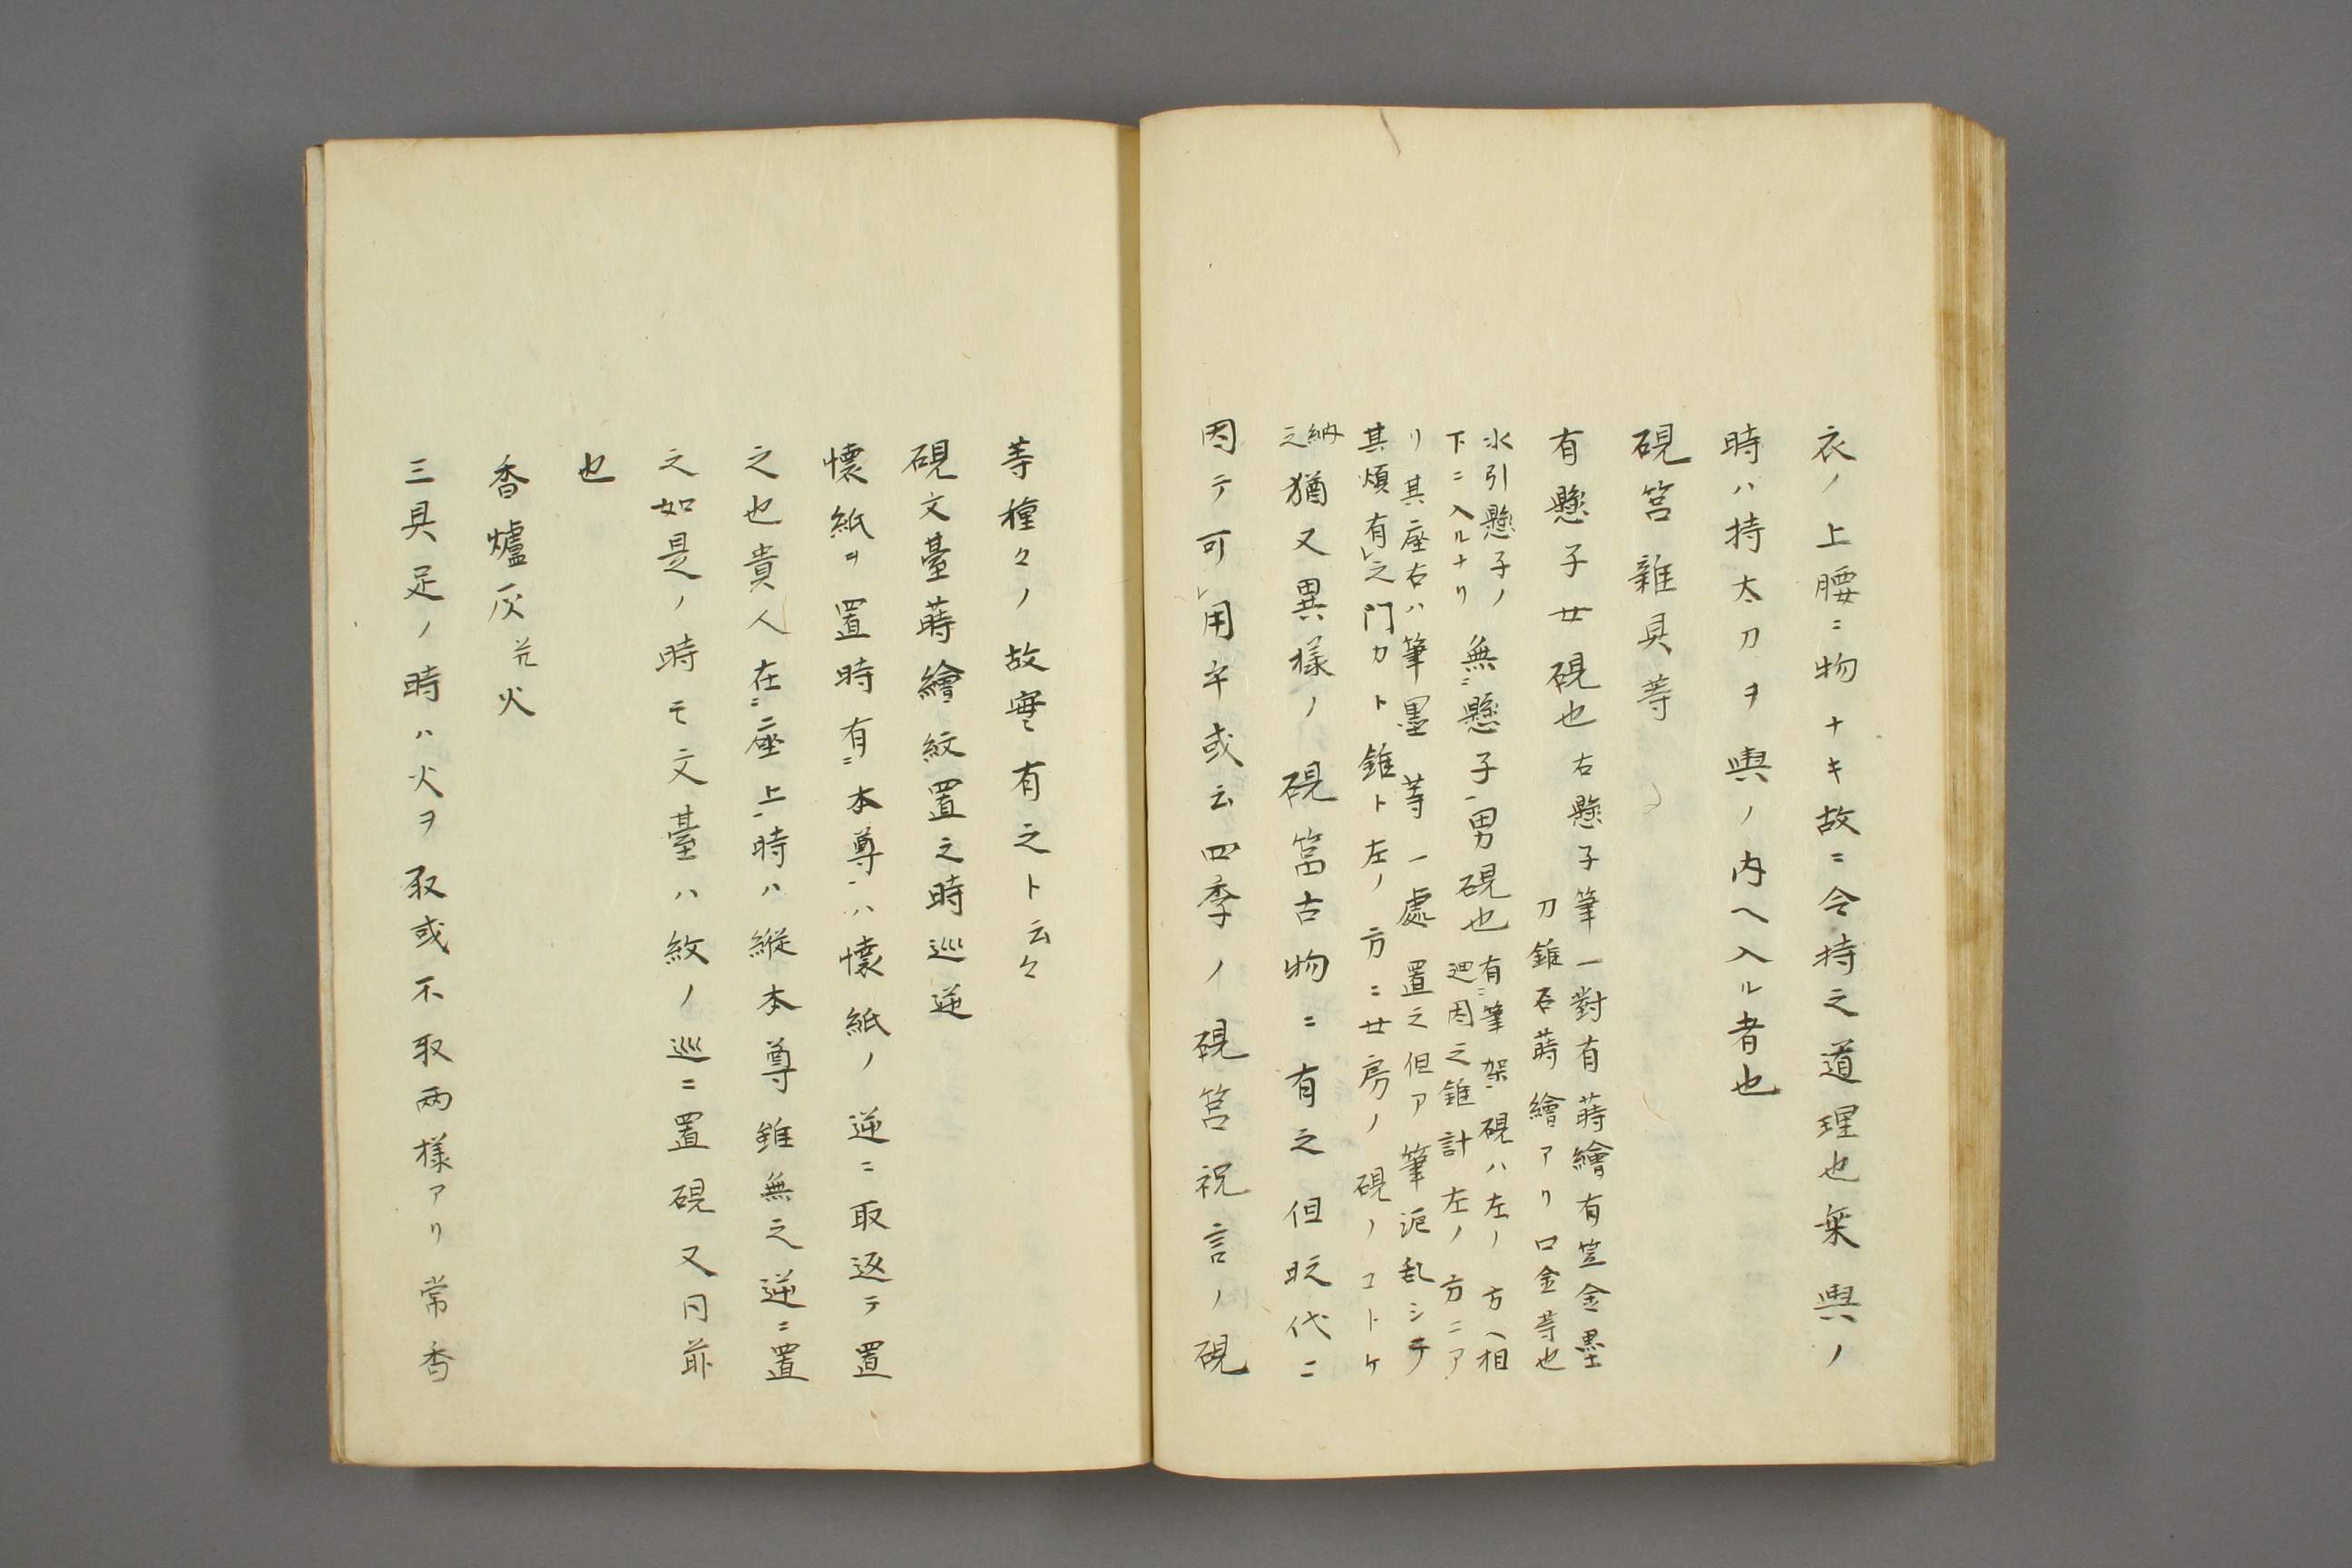 衣ノ上腰ニ物ナキ故ニ令持之道理也乗輿ノ
時ハ持太刀ヲ輿ノ内ヘ入ル者也
硯筥雑具等
有懸子女硯也
右懸子筆一對有蒔繪有笠金墨
刀錐石蒔繪アリ口金等也
水引懸子ノ
下ニ入ルナリ
無ニ懸子ノ男硯也
有ニ筆架ノ硯ハ左ノ方ヘ相
廻因之錐計左ノ方ニア
リ其座右ハ筆墨等一處置之但ア筆泥乱シテ
其煩有レ之門カト錐ト左ノ方ニ女房ノ硯ノコトケ
納
之
猶又異様ノ硯筥古物ニ有之但既代ニ
因テ可レ用卒或云四季ノ硯筥祝言ノ硯
等種々ノ故実有之ト云々
硯文臺蒔繪紋置之時巡逆
懐紙ヲ置時有ニ本尊ハ懐紙ノ逆ニ取返テ置
之也貴人在ニ座上時ハ縦本尊雖無之逆ニ置
之如是ノ時モ文臺ハ紋ノ巡ニ置硯又同前
也
香爐灰并火
三具足ノ時ハ火ヲ取或不取両様アリ常香